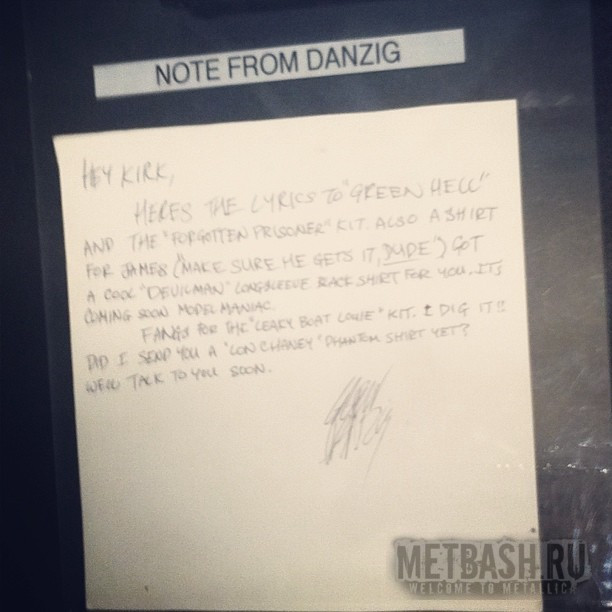 NOTE FROM DANZIG
HEY KIRK,
HERES THE LYRICS TO "GREEN HELL"
AND THE "FORGOTTEN PRISONER" KIT. ALSO A SHIRT
FOR JAMES ("MAKE SURE HE GETS IT, DUDE") GOT
A COOL "DEVILMAN" LONGSLEEVE BLACK SHIRT FOR YOU. ITS
COMING SOON MODEL MANIAC.
FANGS FOR THE "LEAKY BOAT LOUIE" KIT. I DIG IT!!
DID I SEND YOU A "LON CHANEY" PHANTOM SHIRT YET?
WELL TALK TO YOU SOON.
METBASH.RU
WELCOME TO METALLICA